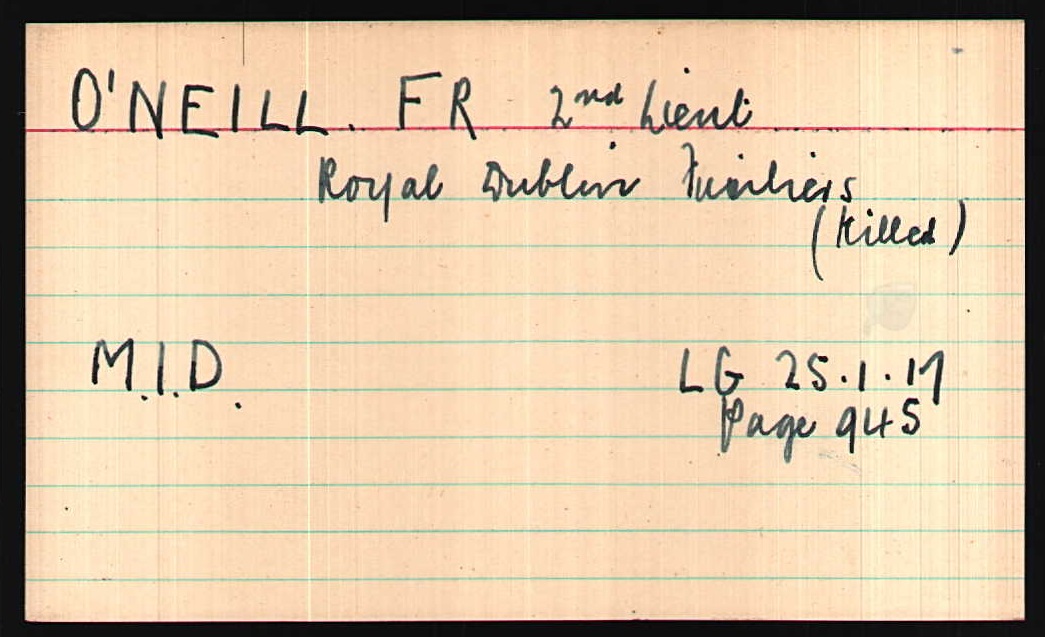 O'NEILL. FR 2nd Lieut
Royal Dublin Fusiliers
(Killed)
M.I.D. LG 25.1.17
Page 945